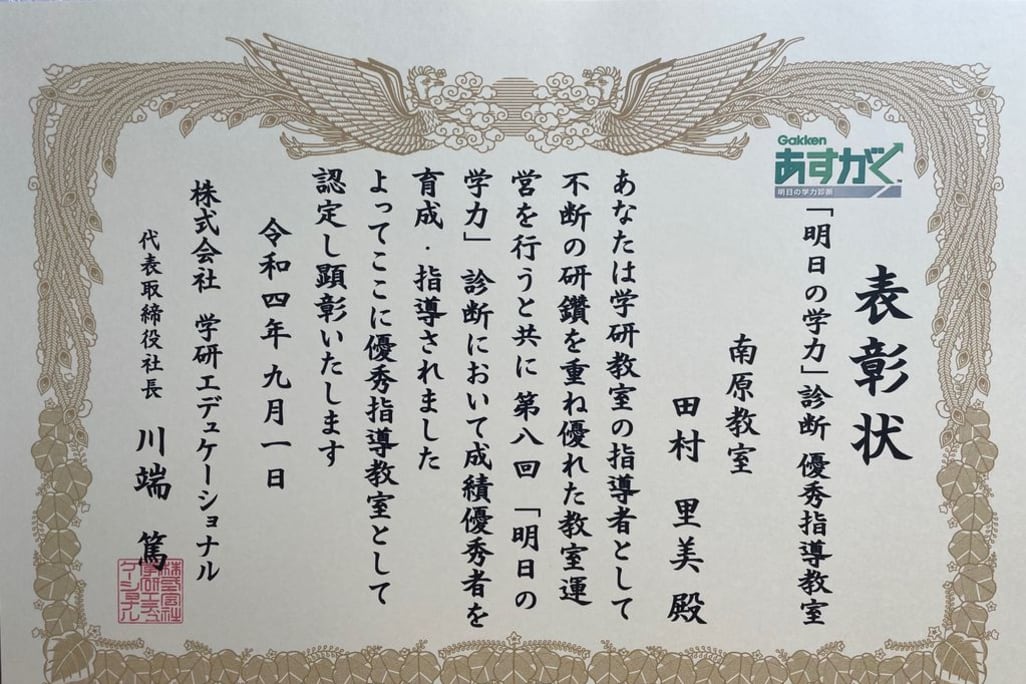 表彰状
Gakken
あすがく
明日の学力診断
「明日の学力」診断 優秀指導教室
南原教室
田村 里美 殿
あなたは学研教室の指導者として
不断の研鑽を重ね優れた教室運
営を行うと共に 第八回 「明日の
学力」 診断において成績優秀者を
育成・指導されました
よってここに優秀指導教室として
認定し顕彰いたします
令和四年九月一日
株式会社 学研エデュケーショナル
代表取締役社長 川端 篤
株式会社
学研エデュ
ケーショナル